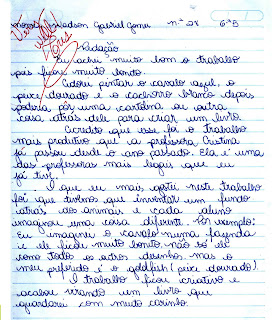 Gabriel Gomes nº 28 6ªB
Redação
Eu achei muito bom o trabalho
pois ficou muito lindo.
Adorei pintar o cavalo azul, o
peixe dourado e o cachorro branco depois
poderia pôr uma cartolina ou outra
coisa atrás dele para criar um livro
Acredito que esse foi o trabalho
mais produtivo que a professora Cristina
já passou desde o ano passado. Ela é uma
das professoras mais legais que eu
já tive.
O que eu mais gostei neste trabalho
foi que tivemos que inventar um fundo
atrás dos animais e cada aluno
imaginou uma coisa diferente. Por exemplo:
Eu imaginei o cavalo numa fazenda
e ele ficou muito bonito, não só ele
como todos o outros desenhos, mas o
meu preferido é o goldfish (peixe dourado).
O trabalho ficou criativo e
acabou virando um livro que
guardarei com muito carinho.